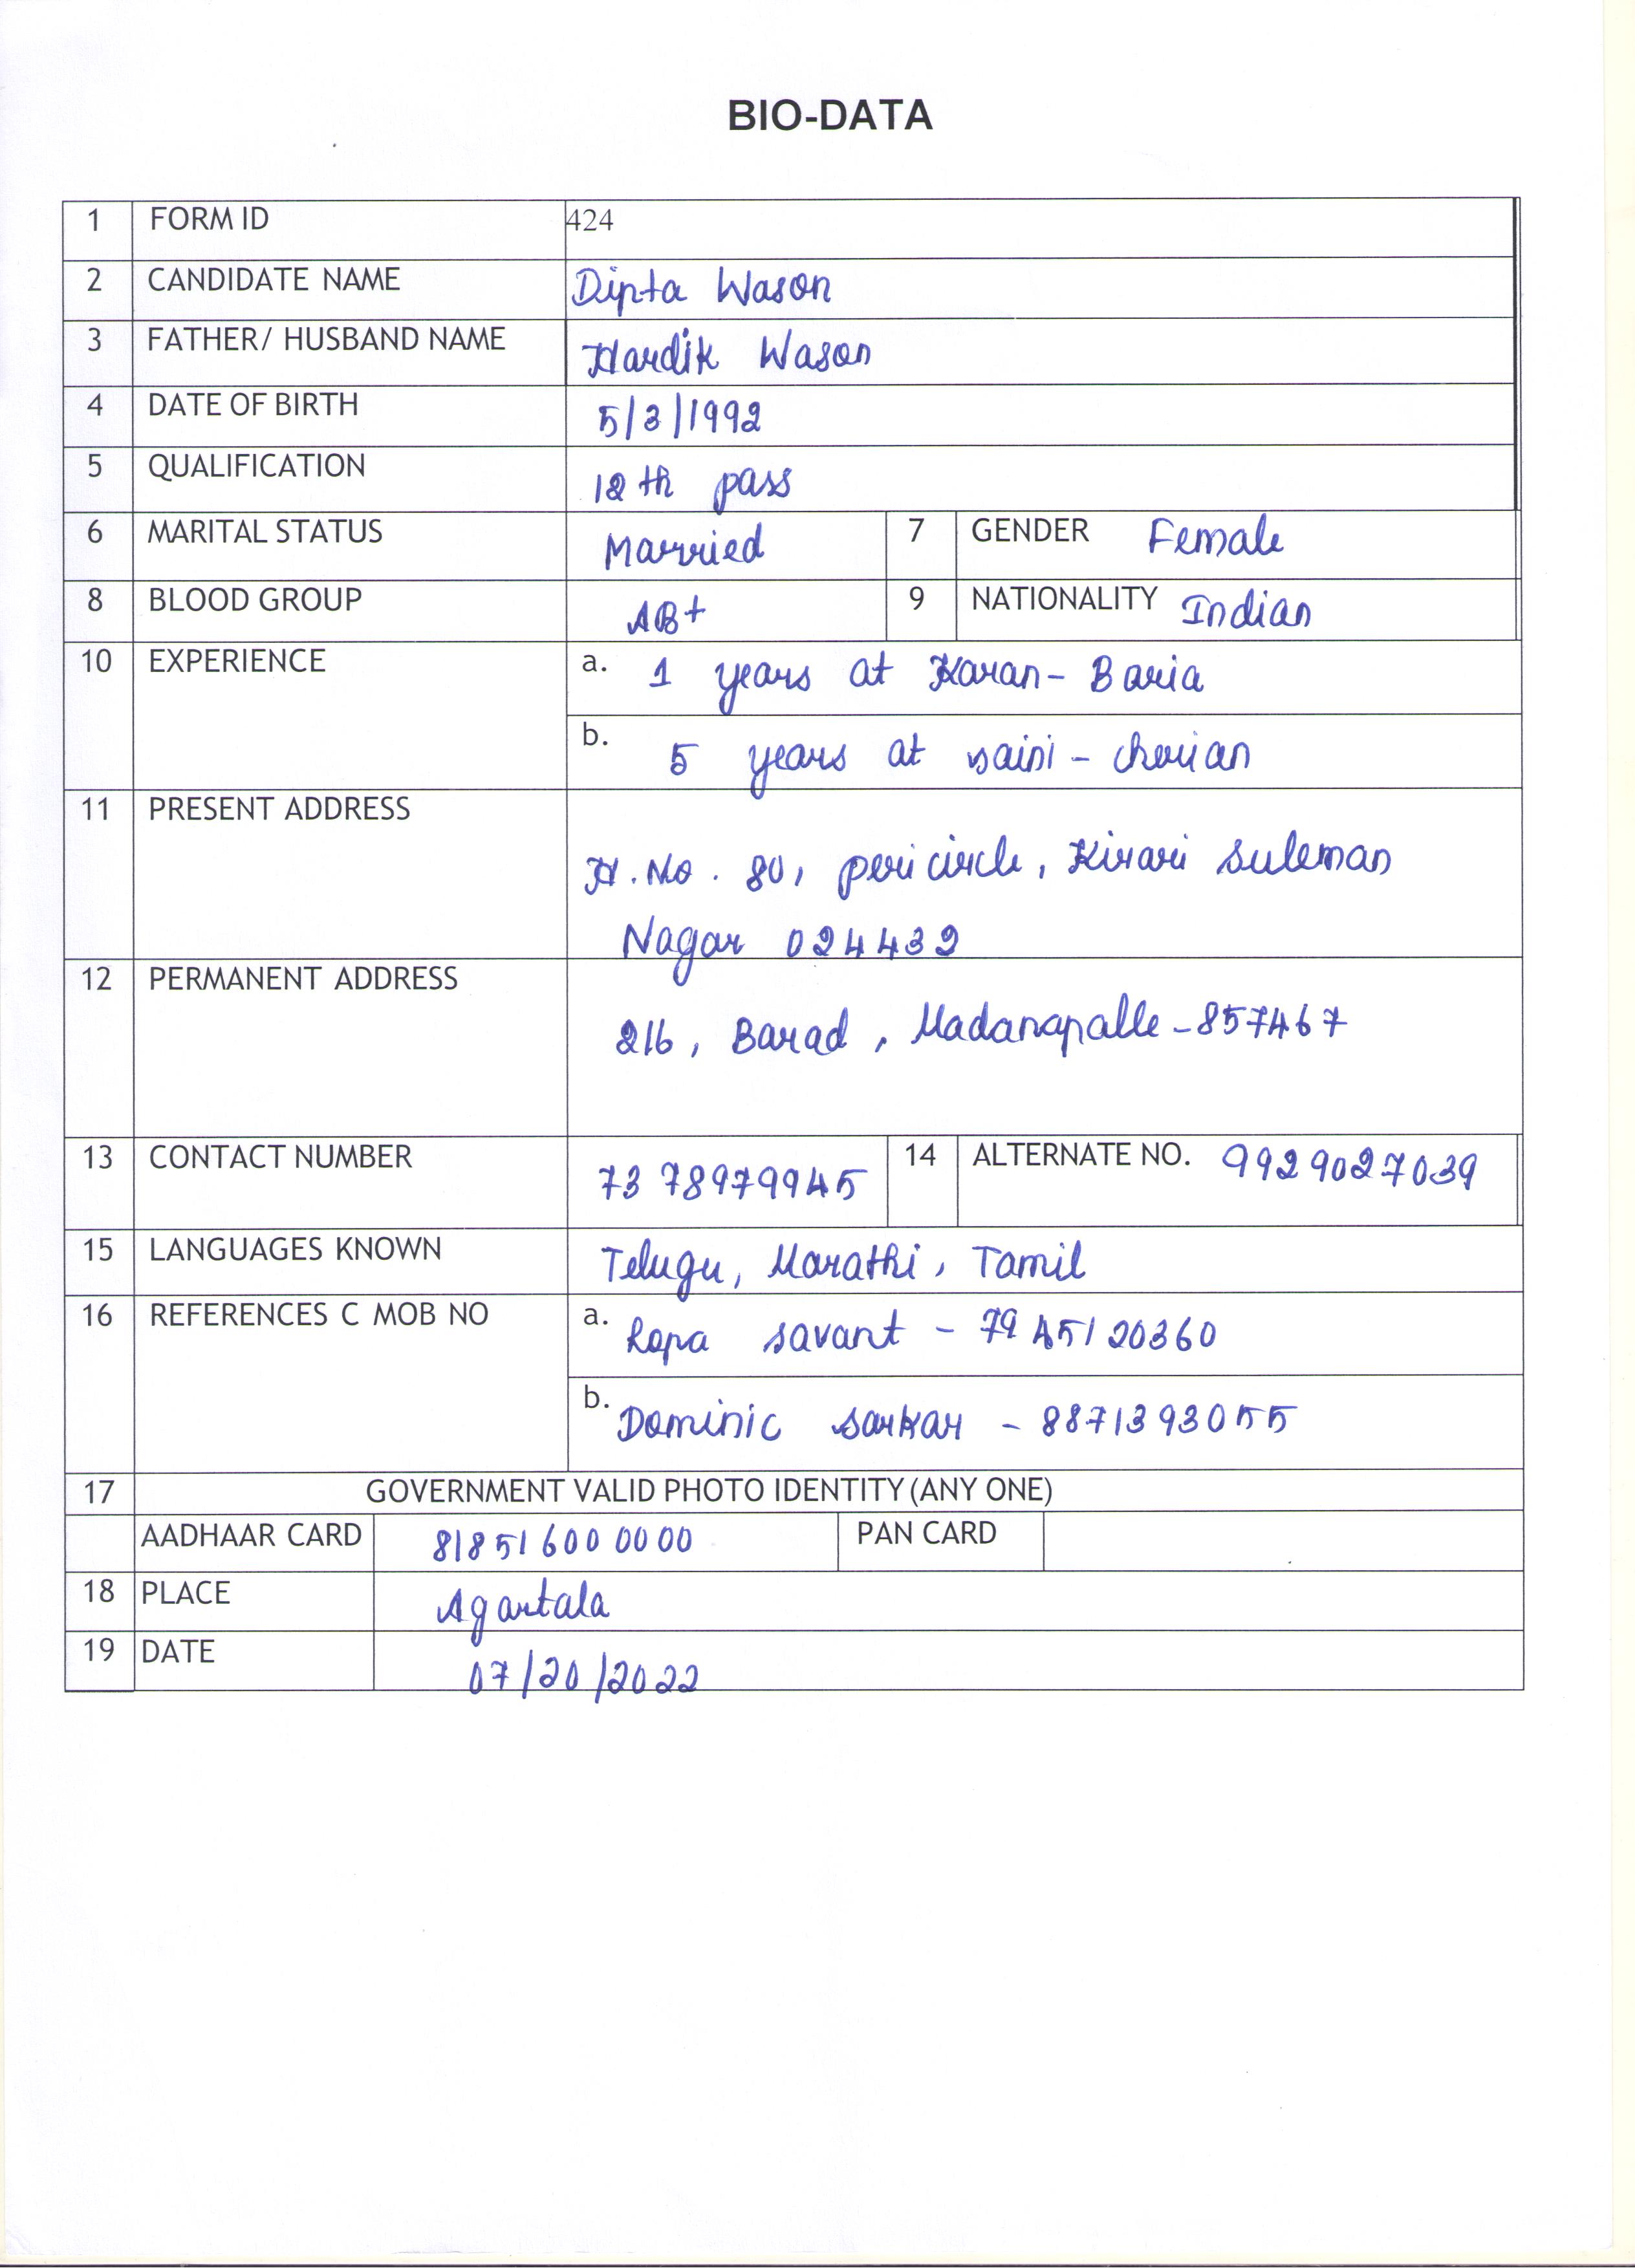 BIO-DATA
1 FORM ID 424
2 CANDIDATE NAME Dipta Wason
3 FATHER/ HUSBAND NAME Hardik Wason
4 DATE OF BIRTH 5/3/1992
5 QUALIFICATION 12th pass
6 MARITAL STATUS Married 7 GENDER Female
8 BLOOD GROUP AB+ 9 NATIONALITY Indian
10 EXPERIENCE a. 1 years at Karan- Baria
b. 5 years at saini - cherian
11 PRESENT ADDRESS
H.No. 80, peri circle, Kirari suleman
Nagar 024432
12 PERMANENT ADDRESS
216, Barad, Madanapalle-857467
13 CONTACT NUMBER 7378979945 14 ALTERNATE NO. 9929027039
15 LANGUAGES KNOWN Telugu, Marathi, Tamil
16 REFERENCES C MOB NO a. Ropa savant - 7945120360
b. Dominic sarkar - 8871393055
17 GOVERNMENT VALID PHOTO IDENTITY (ANY ONE)
AADHAAR CARD 818516000000 PAN CARD
18 PLACE Agartala
19 DATE 07/20/2022